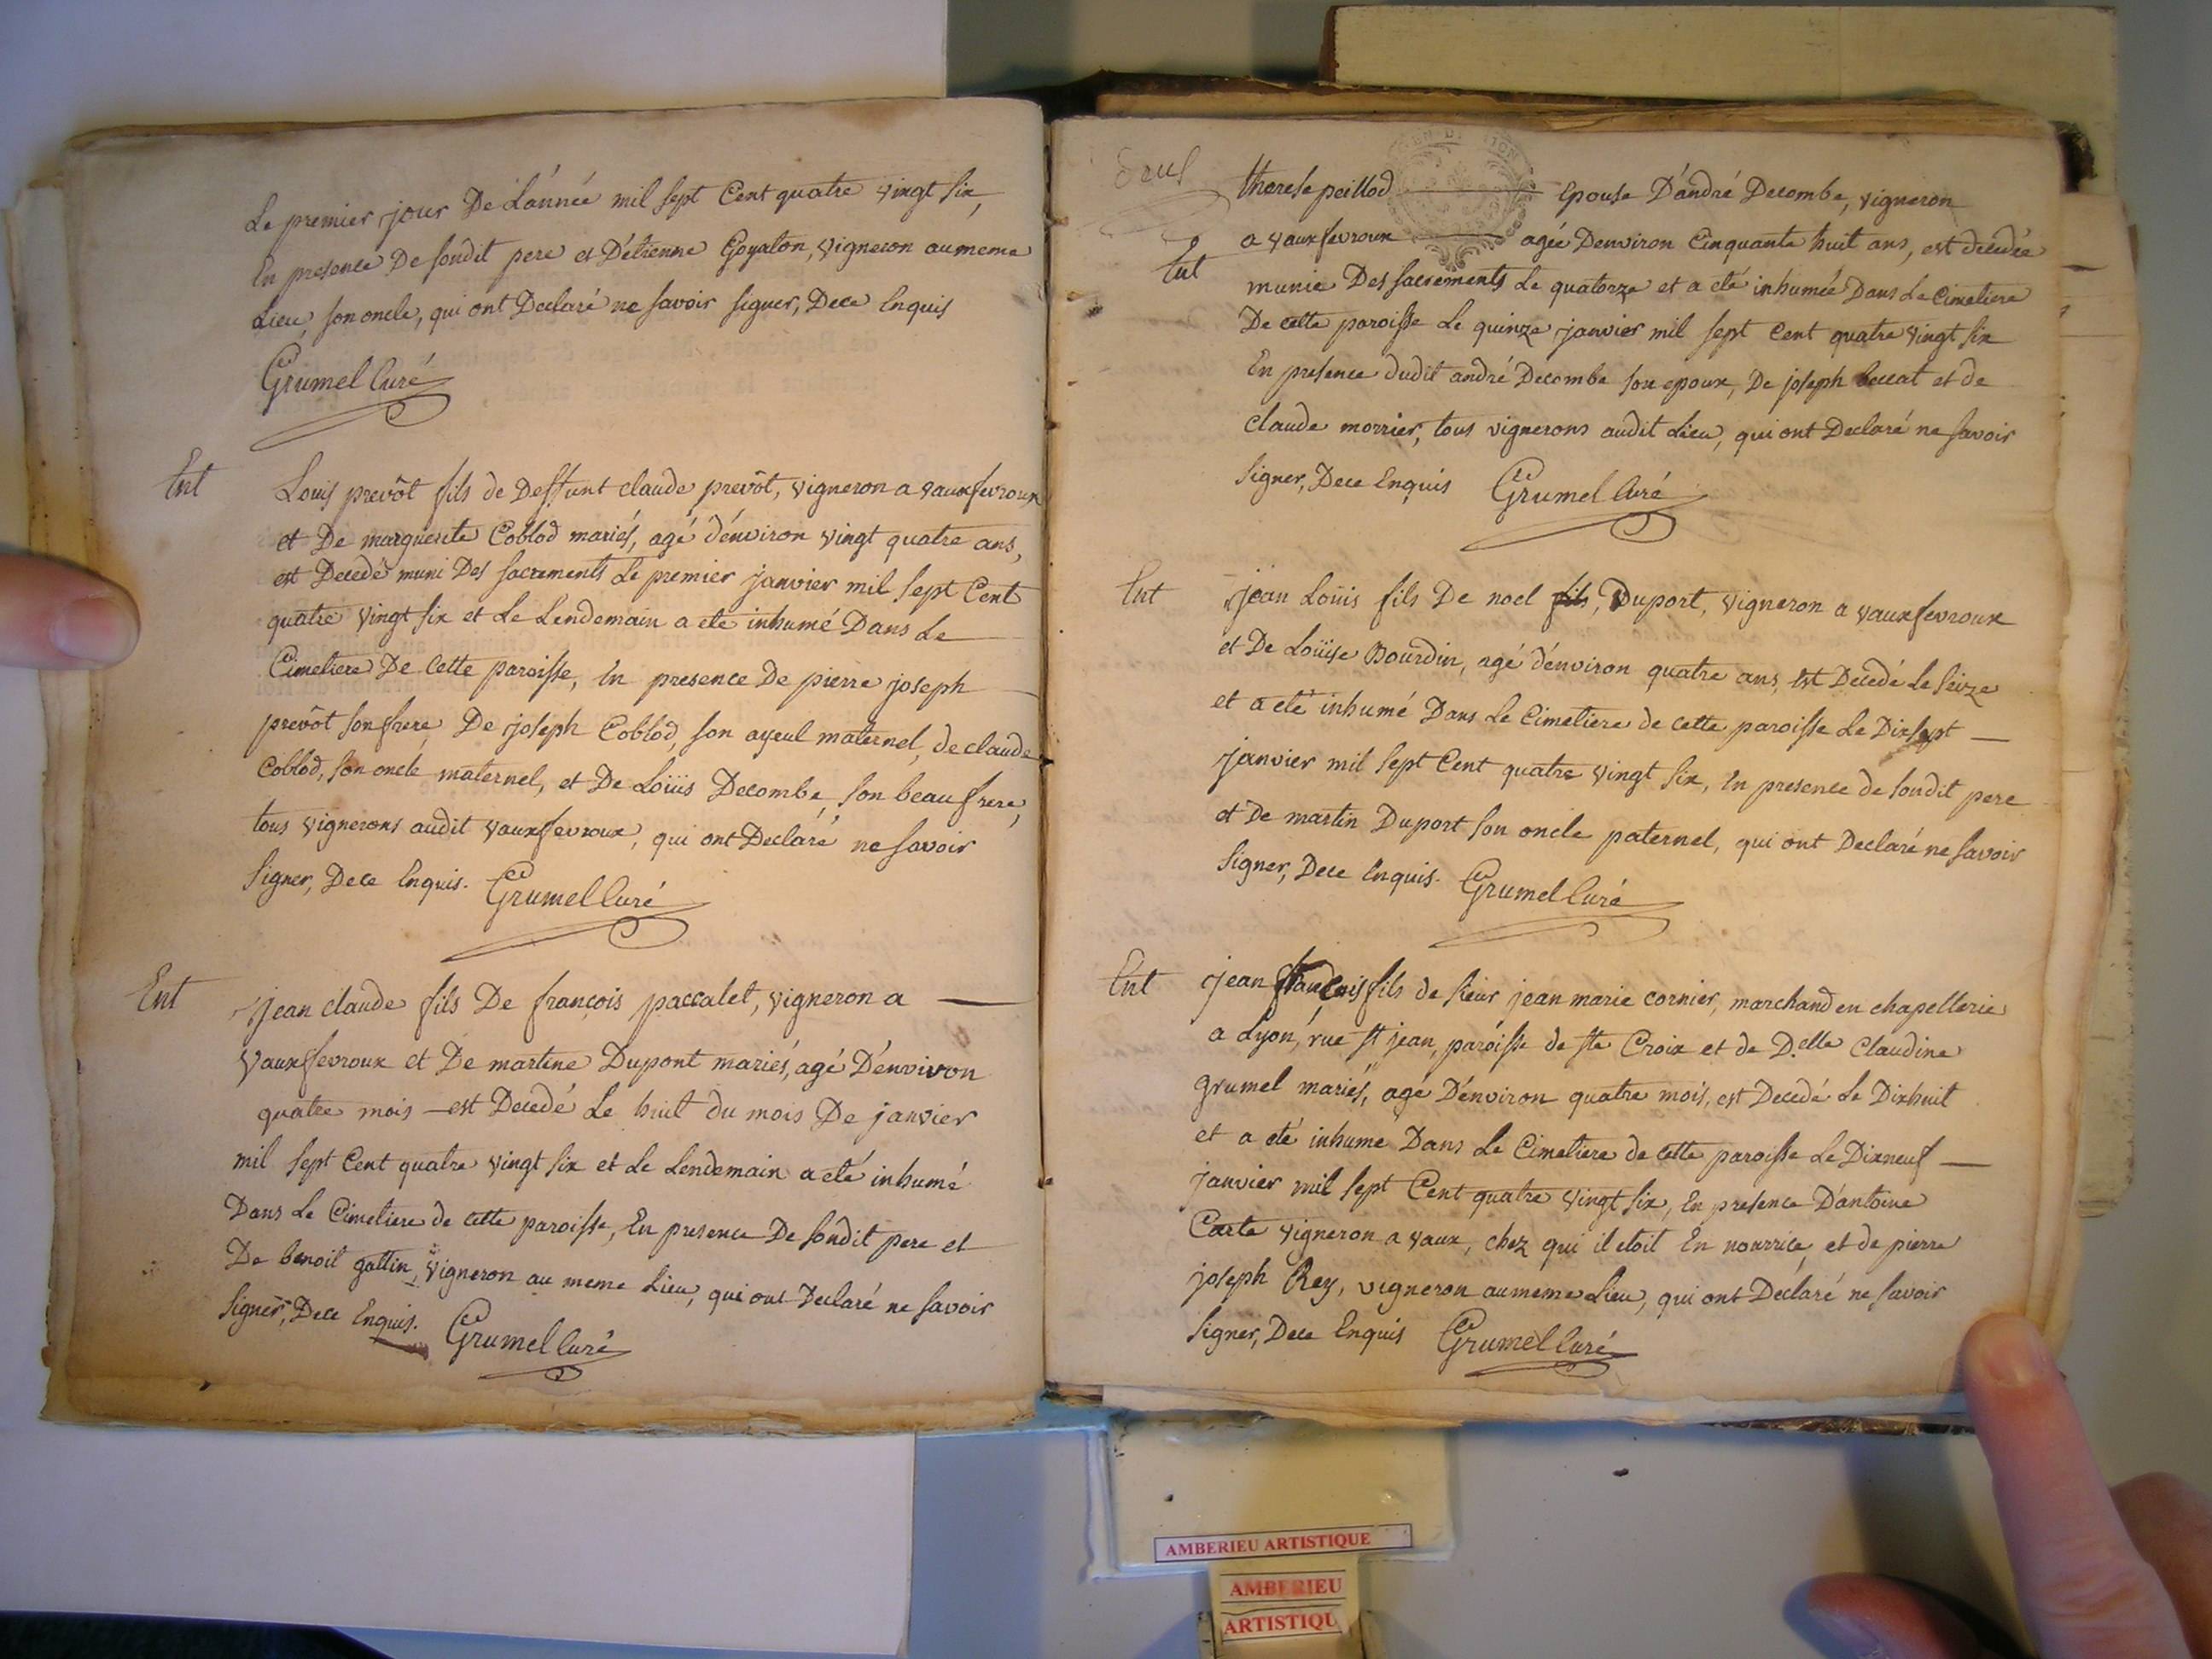 Le premier jour De L'année mil sept Cent quatre vingt six,
En presence De sondit pere et D'étienne Goyaton, vigneron au meme
Lieu, son oncle, qui ont Declaré ne savoir signer, De ce Enquis
Grumel Curé
Ent
Louis prevôt fils de Deffunt claude prevôt, vigneron a vauxfevroux
et De marguerite Coblod mariés, agé d'environ vingt quatre ans,
est Decedé muni Des sacrements Le premier janvier mil sept Cent
quatre vingt six et Le Lendemain a eté inhumé Dans Le
Cimetiere De Cette paroisse, En presence De pierre joseph
prevôt son frere, De joseph Coblod, son ayeul maternel, de claude
Coblod, son oncle maternel, et De Loüis Decombe, son beau frere,
tous vignerons audit vauxfevroux, qui ont Declaré ne savoir
signer, De ce Enquis. Grumel Curé
Ent
jean claude fils De françois paccalet, vigneron a
vauxfevroux et De martine Dupont mariés, agé D'environ
quatre mois est Decedé Le huit du mois De janvier
mil sept Cent quatre vingt six et Le Lendemain a eté inhumé
Dans Le Cimetiere de cette paroisse, En presence De sondit pere et
De benoit gottin, vigneron au meme Lieu, qui ont Declaré ne savoir
signer, De ce Enquis. Grumel Curé
therese peillod Epouse D'andré Decombe, vigneron
a vauxfevroux agée D'environ Cinquante huit ans, est decedée
Ent
munie Des sacrements Le quatorze et a eté inhumée Dans Le Cimetiere
De cette paroisse Le quinze janvier mil sept Cent quatre vingt six
En presence dudit andré Decombe son epoux, De joseph beccat et de
claude morrier, tous vignerons audit Lieu, qui ont Declaré ne savoir
signer, De ce Enquis Grumel Curé
Ent
jean Loüis fils De noel fils, Duport, vigneron a vauxfevroux
et De Loüise Bourdin, agé d'environ quatre ans, Est Decedé Le seize
et a eté inhumé Dans Le Cimetiere de cette paroisse Le Dixsept
janvier mil sept Cent quatre vingt six, En presence de sondit pere
et De martin Duport son oncle paternel, qui ont Declaré ne savoir
signer, De ce Enquis. Grumel Curé
Ent
jean françois fils de sieur jean marie cornier, marchand en chapellerie
a Lyon, rue st jean, paroisse de ste Croix et de D.elle Claudine
grumel mariés, agé D'environ quatre mois, est Decedé Le Dixhuit
et a eté inhumé Dans Le Cimetiere de cette paroisse Le Dixneuf
janvier mil sept Cent quatre vingt six, En presence D'antoine
Carte vigneron a vaux, chez qui il etoit En nourrice, et de pierre
joseph Rey, vigneron au meme Lieu, qui ont Declaré ne savoir
signer, De ce Enquis Grumel Curé
AMBERIEU ARTISTIQUE
AMBERIEU
ARTISTIQU